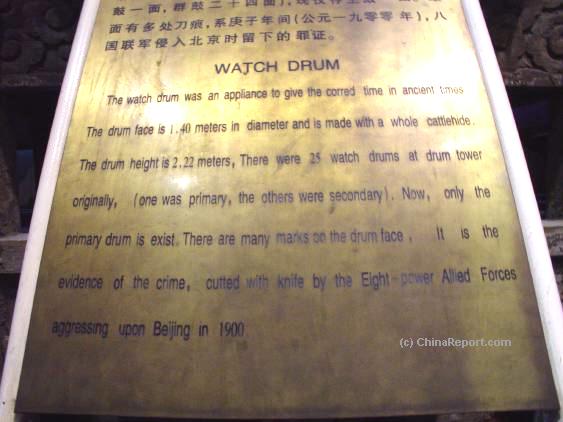 鼓一面，群鼓二十四面)，现仅存主鼓一
面有多处刀痕，系庚子年间(公元一九零零年)，八
国联军侵入北京时留下的罪证。
WATCH DRUM
The watch drum was an appliance to give the corred time in ancient times
The drum face is 1.40 meters in diameter and is made with a whole cattlehide.
The drum height is 2.22 meters, There were 25 watch drums at drum tower
originally, (one was primary, the others were secondary). Now, only the
primary drum is exist. There are many marks on the drum face, It is the
evidence of the crime, cutted with knife by the Eight-power Allied Forces
aggressing upon Beijing in 1900.
(c) ChinaReport.com